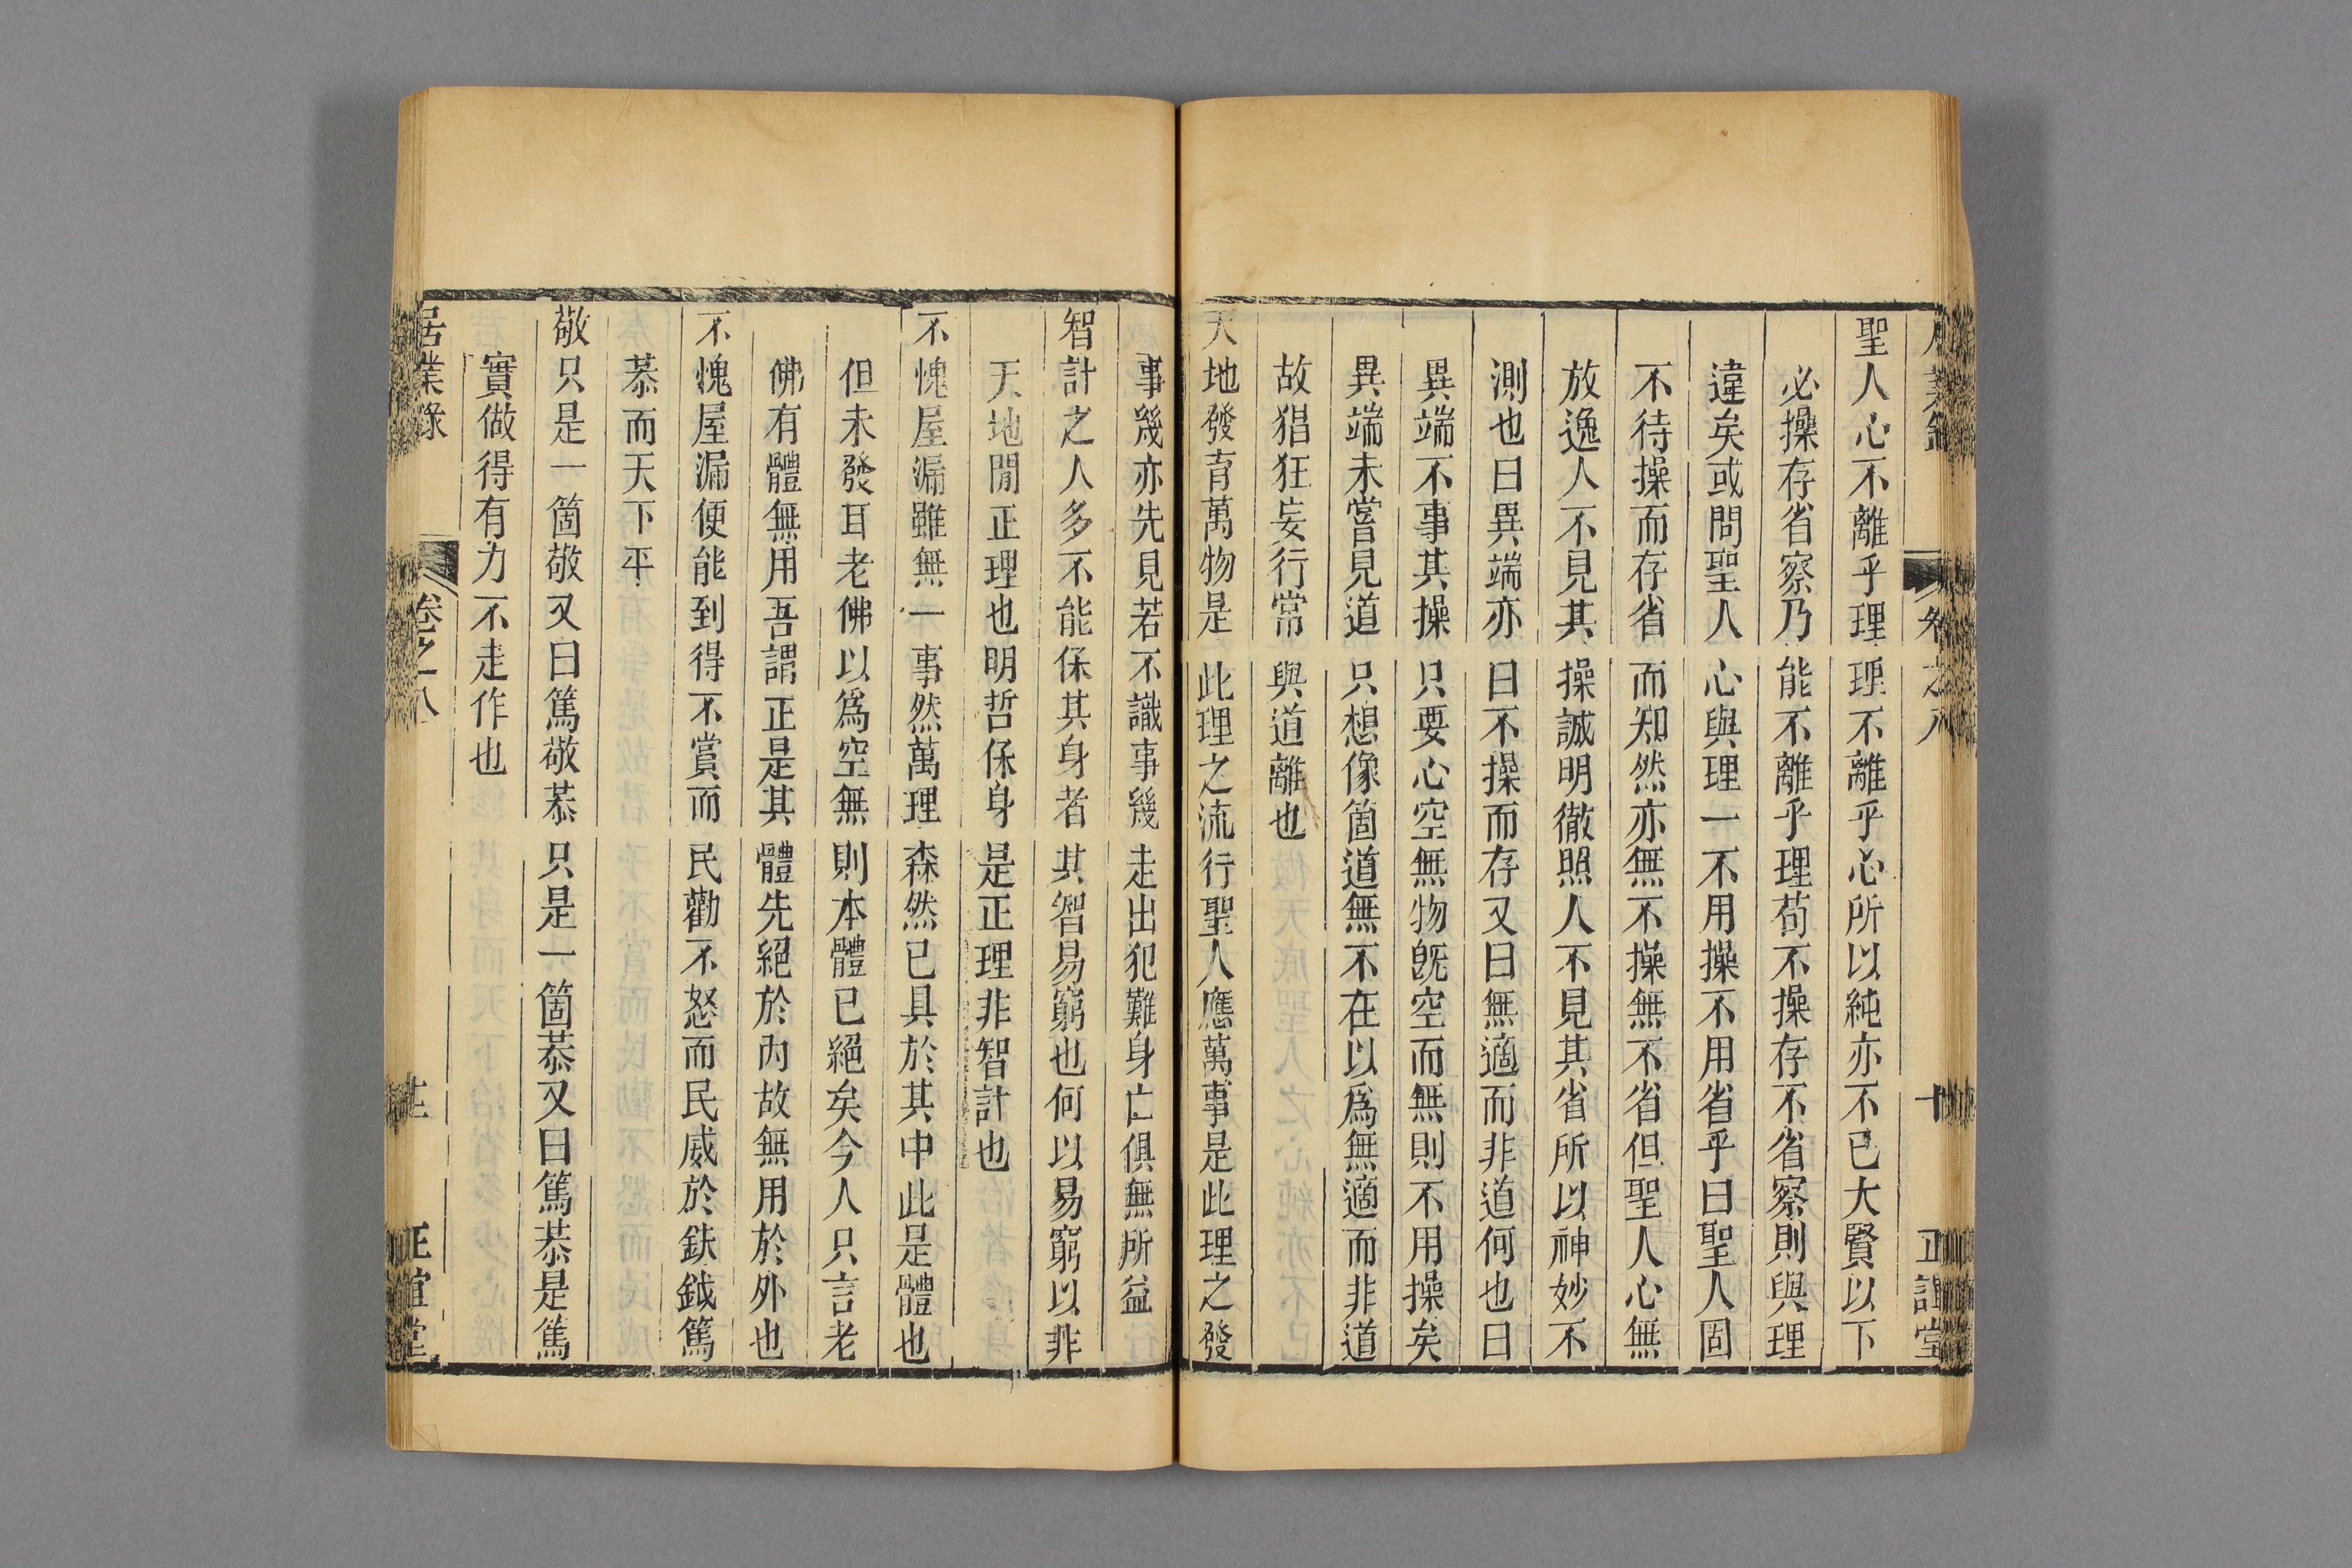 聖人心不離乎理理不離乎心所以純亦不已大賢以下
必操存省察乃能不離乎理苟不操存不省察則與理
違矣或問聖人心與理一不用操不用省乎曰聖人固
不待操而存省而知然亦無不操無不省但聖人心無
放逸人不見其操誠明徹照人不見其省所以神妙不
測也曰異端亦曰不操而存又曰無適而非道何也曰
異端不事其操只要心空無物旣空而無則不用操矣
異端未嘗見道只想像箇道無不在以爲無適而非道
故猖狂妄行常與道離也
天地發育萬物是此理之流行聖人應萬事是此理之發
事幾亦先見若不識事幾走出犯難身亡俱無所益
智計之人多不能保其身者其智易窮也何以易窮以非
天地閒正理也明哲保身是正理非智計也
不愧屋漏雖無一事然萬理森然已具於其中此是體也
但未發耳老佛以爲空無則本體已絕矣今人只言老
佛有體無用吾謂正是其體先絕於內故無用於外也
不愧屋漏便能到得不賞而民勸不怒而民威於鈇鉞篤
恭而天下平
敬只是一箇敬又曰篤敬恭只是一箇恭又曰篤恭是篤
實做得有力不走作也
居業錄
卷之八
正誼堂